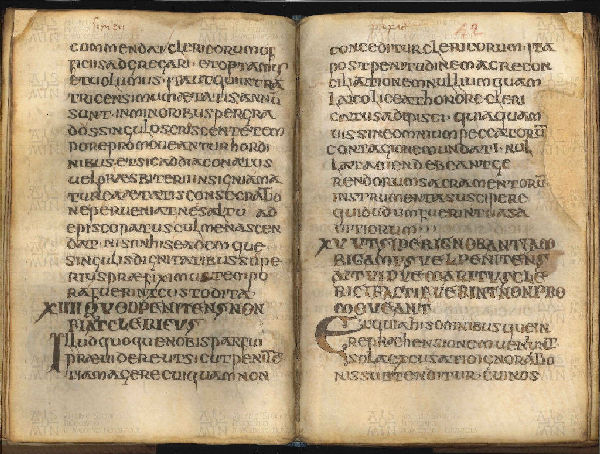 COMMENDAT CLERICORUM OF
FICIIS ADGREGARI · ET OPTAMUS
ET UOLUMUS · ITA UT QUI INTRA
TRICENSIMUM AETATIS ANNŪ
SUNT · IN MINORIBUS PER GRA
DOS SINGULOS CRISCENTE TEM
PORE PROMOUEANTUR HORDI
NIBUS · ET SIC AD DIACONATUS
UEL PRAESBITERII INSIGNIA MA
TURE AETATIS CONSECRATIO
NE PERUENIAT NE SALTU AD
EPISCOPATUS CULMEN ASCEN
DAT · NISI IN HIS EADEM QUE
SINGULIS DIGNITATIBUS SUPE
RIUS PRAEFIXIMUS TEMPO
RA FUERINT CUSTODITA
XIIII QUOD PENITENS NON
FIAT CLERICUS
ILLUD QUOQUE NOBIS PAR FUI
PRAEUIDERE UT SICUT PENITEN
TIAM AGERE CUIQUAM NON
CONCEDITUR CLERICORUM · ITA
POST PENITUDINEM AC RECON
CILIATIONEM NULLI UM QUAM
LAICO LICEAT HONORE CLERI
CATUS ADIPISCI · QUIA QUAM
UIS SINE OMNIUM PECCATORŪ
CONTAGIONE MUNDATI · NUL
LA TAMEN DEBEANT GE
RENDORUM SACRAMENTORŪ
INSTRUMENTA SUSCIPERE
QUI DUDUM FUERINT UASA
UITIORUM
XV UT SI PER IGNORANTIAM
BIGAMUS UEL PENITENS
AUT UIDUE MARITUS CLE
RICI FACTI FUERINT NON PRO
MOUEANT
ET QUIA HIS OMNIBUS QUE IN
REPRAEHENSIONEM UENIUNT
SOLA EXCUSATIO IGNORATIO
NIS SUBTENDITUR · CUI NOS